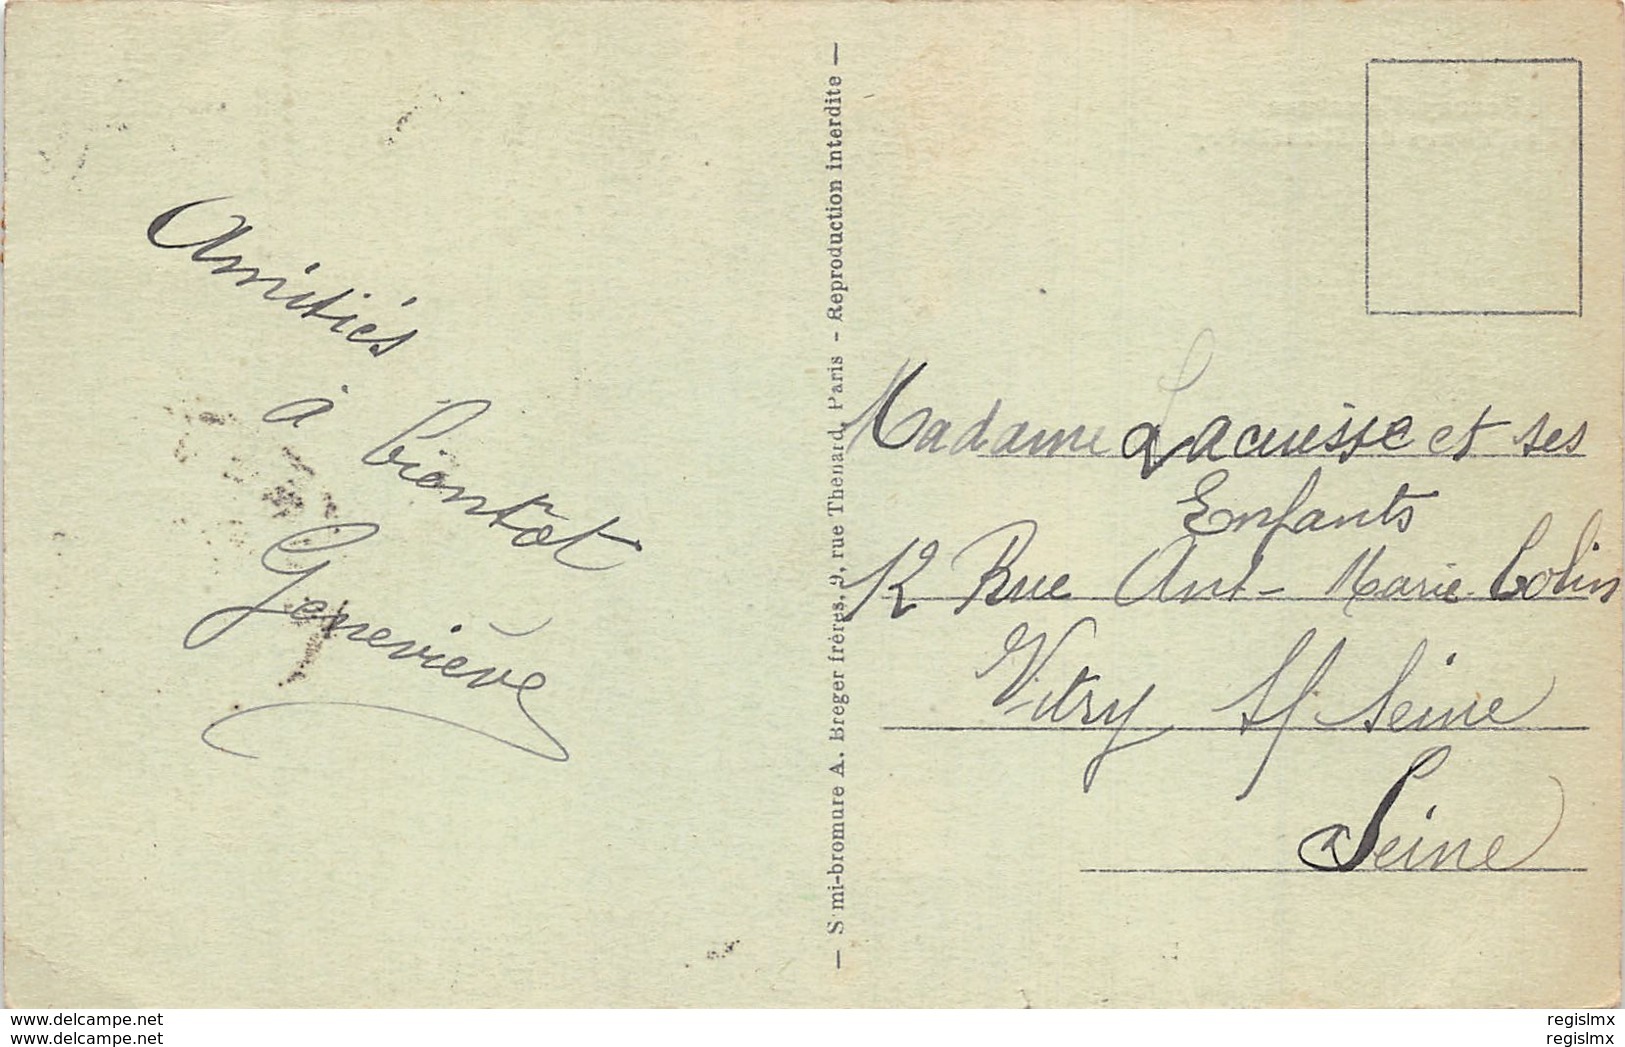 Amitiés
à bientôt
Geneviève
— Semi-bromure A. Breger frères, 9, rue Thenard, Paris – Reproduction interdite —
Madame Lacuisse et ses
Enfants
12 Rue Ant- Marie Colin
Vitry s/ Seine
Seine
www.delcampe.net
regislmx
www.delcampe.net
regislmx